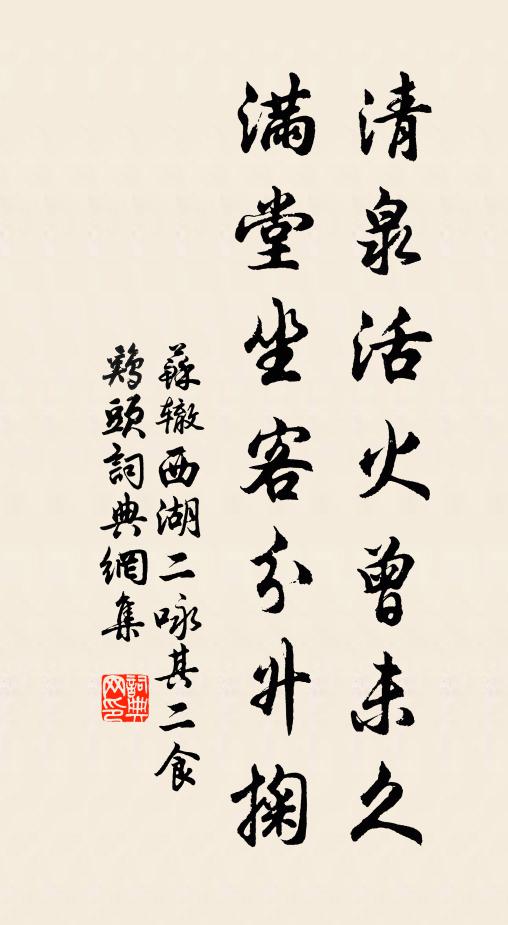 清泉活火曾未久
滿堂坐客分升掬
蘇辙西湖二咏其二食
鷄頭詞典網集
詞典网印